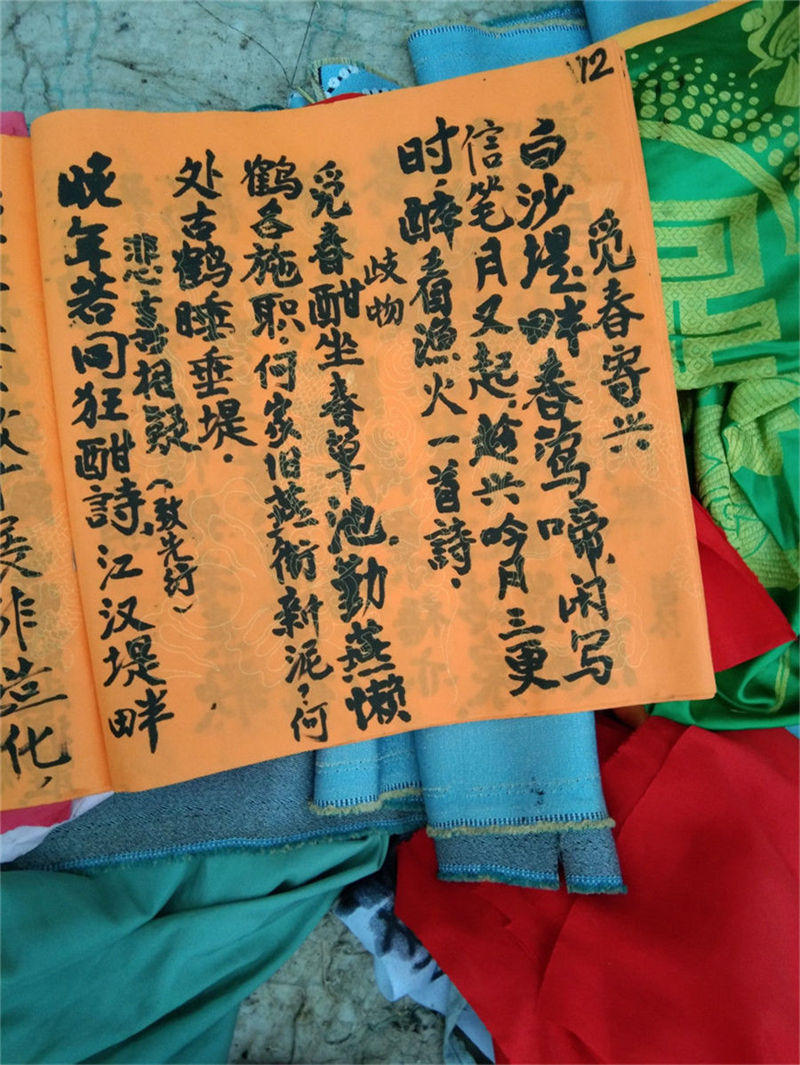 12
觅春寄兴
白沙堤畔春莺啼,闲写
信笔月又起,趁兴吟月三更
时,醉看漁火一首詩.
歧物
觅春酣坐春草池,勤燕懒
鹤各施职.何家旧燕衔新泥,何
处古鹤睡垂堤.
悲喜亦相疑(致先行)
晚年若同狂酣詩,江汉堤畔
展非造化,